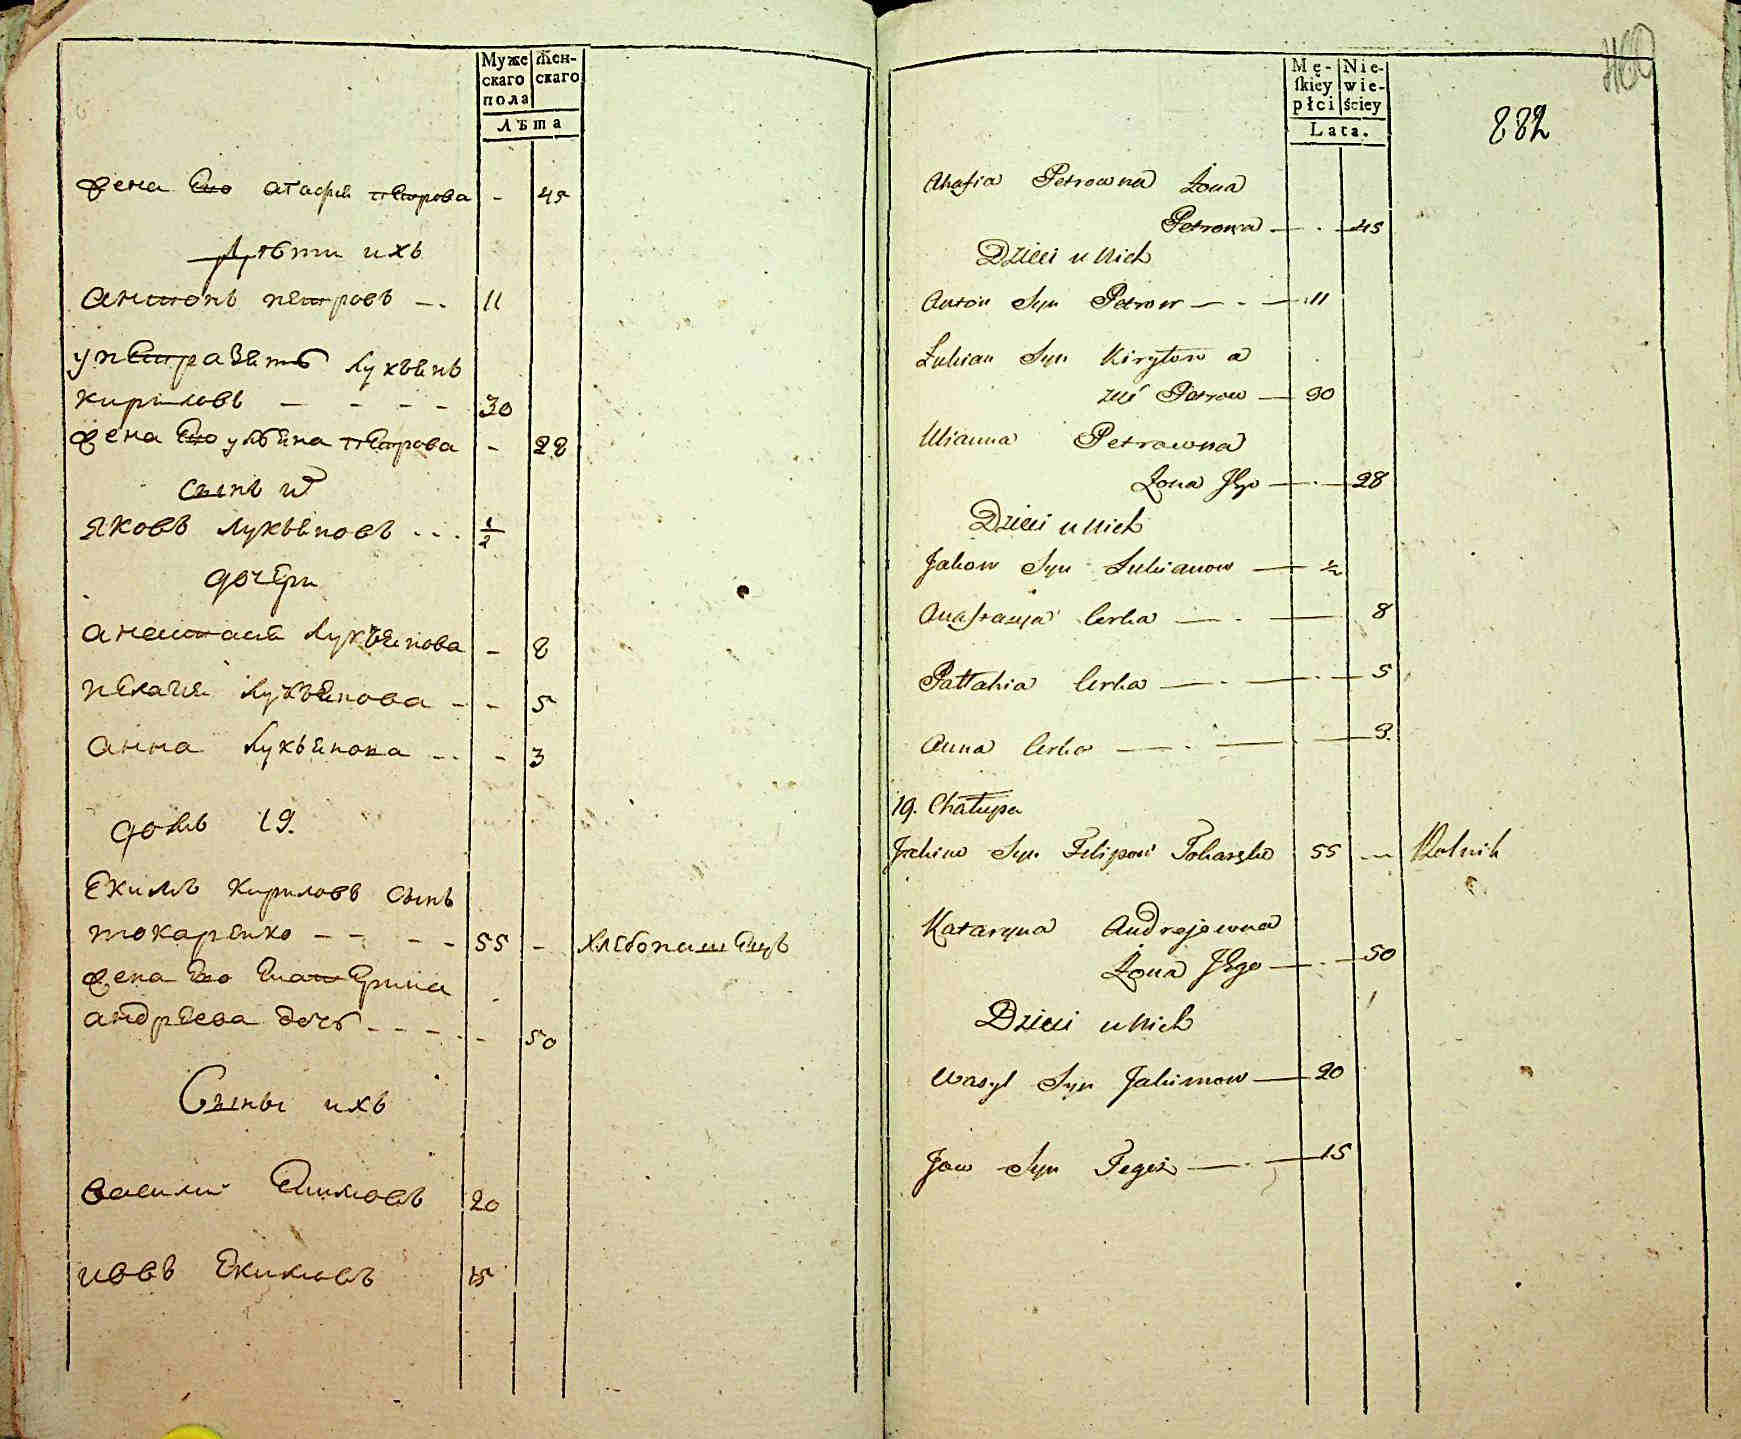 Муже скаго пола
Жен- скаго
Лѣта
жена Его агафия петрова - 45
Дѣти ихъ
антонъ петровъ - . 11
у петра зять лукьянъ
кириловъ - - - - 30
жена Его ульяна петрова - 28
сынъ их
яковъ лукьяновъ . . . 1/2
дочери
анастасия лукьянова - 8
пелагия лукьянова - - 5
анна лукьянова - . . - 3
домъ 19.
Екимъ кириловъ сынъ
токаренко - - - - 55 - хлебопашецъ
жена Его Екатерина
андреева дочь - - - - 50
Сыны ихъ
василий Екимовъ 20
иовъ Екимовъ 15
Mę- skiey płci
Nie- wie- ściey
Lata.
882
Ahafia Petrowna Żona
Petrowa — . — 45
Dzieci u Nich
Anton Syn Petrow — . — 11
Łukian Syn Kiryłow a
zięć Petrow — 30
Ulianna Petrowna
Żona Jego — . — 28
Dzieci u Nich
Jakow Syn Łukianow — 1/2
Anastazya Corka — . — 8
Pałłahia Corka — . — . — 5
Anna Corka — . — . — 3.
19. Chałupa
Jakim Syn Filipow Tokarenko 55 .. Rolnik
Kataryna Andrejowna
Żona Jego — . — 50
Dzieci u Nich
Wasyl Syn Jakimow — 20
Jow Syn Tegoż — . — 15